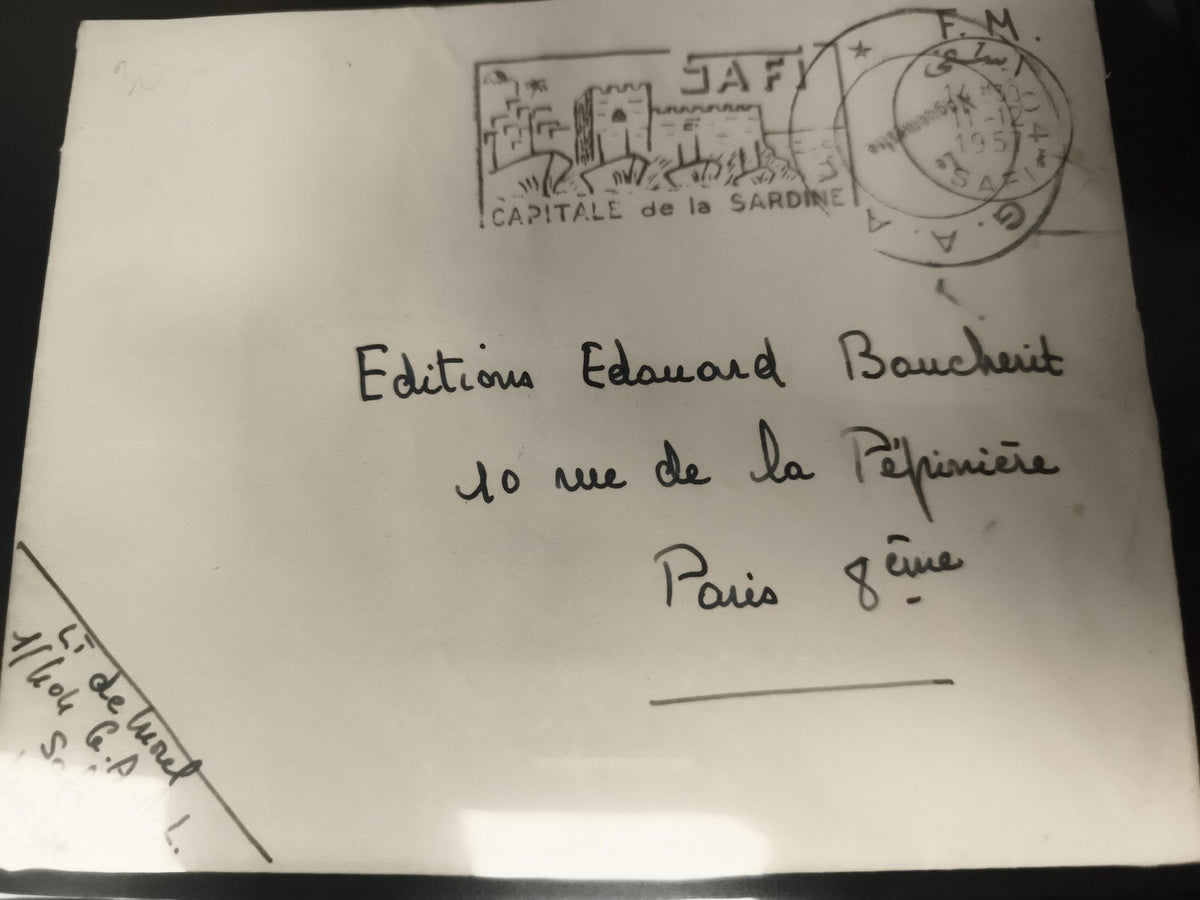 F.M.
SAFI
CAPITALE de la SARDINE
آسفي
1957
SAFI
G.A.A.
Editions Edouard Boucherit
10 rue de la Pépinière
Paris 8ème
Lt de Morel
1/404 G.A.A.L.